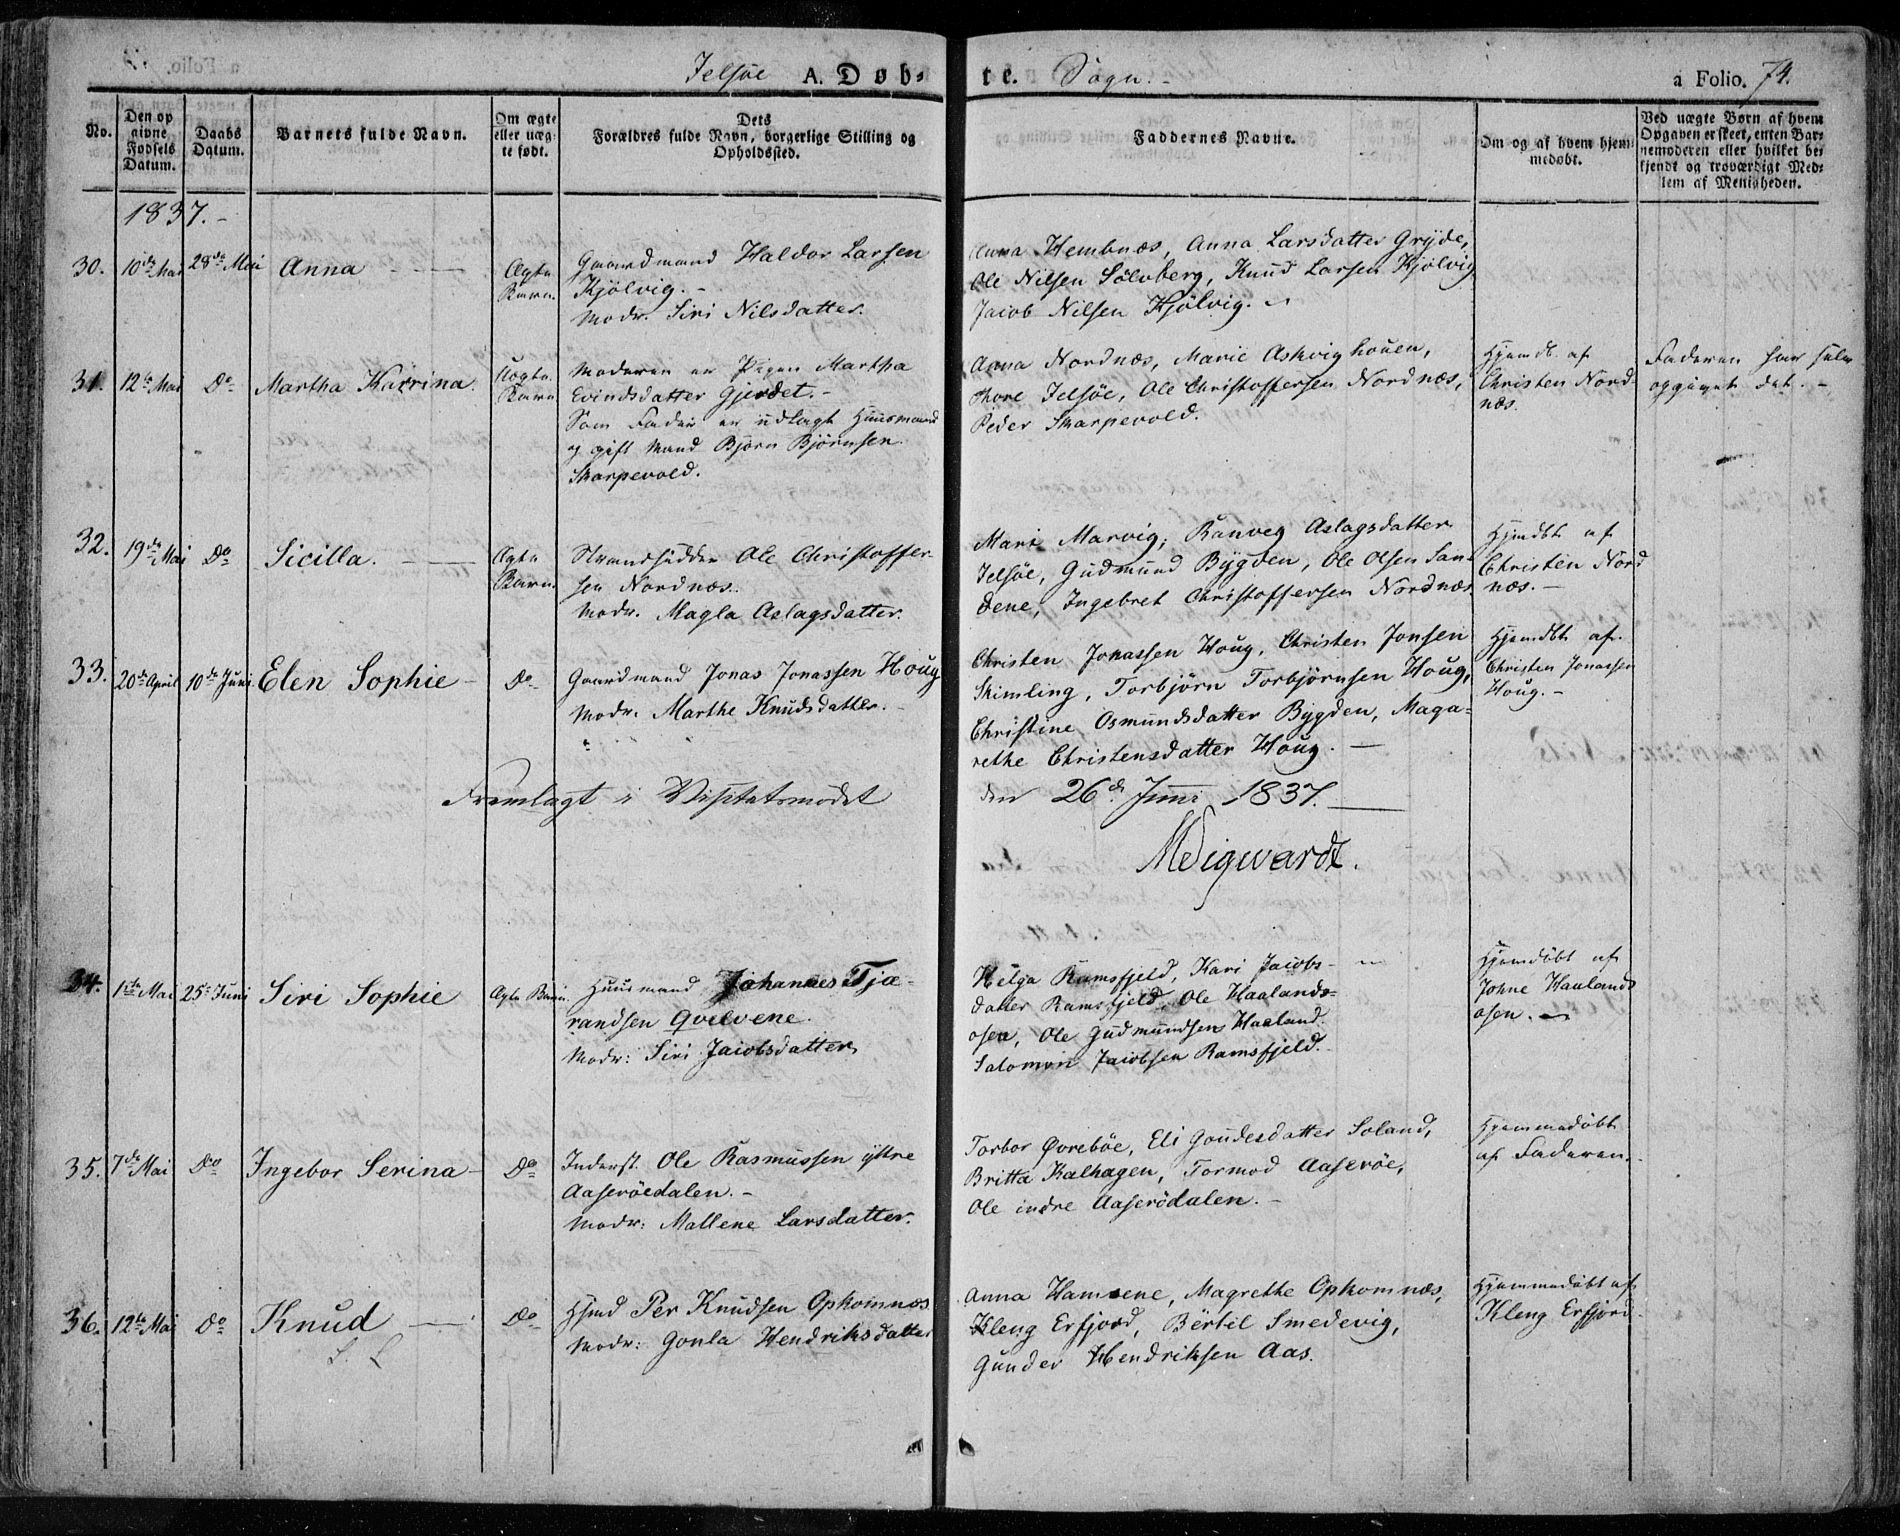 Jelsøe A. Døb- te. Sogn. a Folio. 74.
No.
Den op
givne
Fødsels
Datum.
Daabs
Datum.
Barnets fulde Navn.
Om ægte
eller uæg-
te født.
Dets
Forældres fulde Navn, borgerlige Stilling og
Opholdssted.
Faddernes Navne.
Om og af hvem hjem-
medøbt.
Ved uægte Børn af hvem
Opgaven er skeet, enten Bar-
nemoderen eller hvilket be-
kjendt og troværdigt Med-
lem af Menigheden.
1837.-
30. 10de Mai 28de Mai Anna
Ægte
Barn.
Gaardmand Haldor Larsen
Kjölvig.-
Modr. Siri Nilsdatter.
Anna Hembnæs, Anna Larsdatter Grijde,
Ole Nilsen Sölvberg, Knud Larsen Kjölvig
Jacob Nilsen Kjölvig.
31. 12te Mai Do Martha Katrina.
Uægte
Barn
Moderen er Pigen Martha
Evindsdatter Gjerdet.-
Som Fader er udlagt Huusmand
og gift Mand Björn Björnsen
Skarpevold.
Anna Nordnæs, Marie Askvighouen,
Thore Jelsöe, Ole Christoffersen Nordnæs,
Peder Skarpevold.
Hjemdb. af
Christen Nord-
næs.
Faderen har selv
opgivet det.-
32. 19de Mai Do Sicilla.
Ægte
Barn.
Strandsidder Ole Christoffer
sen Nordnæs.
Modr. Magla Aslagsdatter.
Mari Marvig, Ranveg Aslagsdatter
Jelsöe, Gudmund Bygden, Ole Olsen San-
dene, Ingebret Christoffersen Nordnæs
Hjemdbt af
Christen Nord
næs.-
33. 20de April 10de Juni Elen Sophie- Do
Gaardmand Jonas Jonassen Houg
Modr. Marthe Knudsdatter.-
Christen Jonassen Houg, Christen Jonsen
Skimling, Torbjörn Torbjörnsen Houg,
Christine Osmundsdatter Bygden, Maga-
rethe Christensdatter Houg.-
Hjemdbt af
Christen Jonassen
Houg.-
Fremlagt i Visitatsmødet den 26de Juni 1837.
34. 1ste Mai 25de Juni Siri Sophie Ægte Barn.
Huusmand Johannes Tjæ-
randsen Qvelvene.
Modr: Siri Jacobsdatter
Helga Ramsfjeld, Kari Jacobs-
datter Ramsfjeld, Ole Haalands-
osen, Ole Gudmundsen Haaland.
Salomon Jacobsen Ramsfjeld.
Hjemdöbt af
Johne Haalands
osen.-
35. 7de Mai Do Ingebor Serina- Do
Inderst. Ole Rasmussen ijttre
Aaseröedalen.-
Modr: Mallene Larsdatter.
Torbor Øvreböe, Eli Goudesdatter Soland,
Britta Kalhagen, Tormod Aaseröe,
Ole indre Aaserödalen.-
Hjemmedöbt
af Faderen.
36. 12te Mai Do Knud Do
Hsmd Per Knudsen Ophomnæs
Modr: Gonla Hendriksdatter
Anna Hamsene, Magrethe Ophomnæs,
Kleng Erfjord, Bertil Smedevig,
Gunder Hendriksen Aas.
Hjemmedöbt af
Kleng Erfjord.